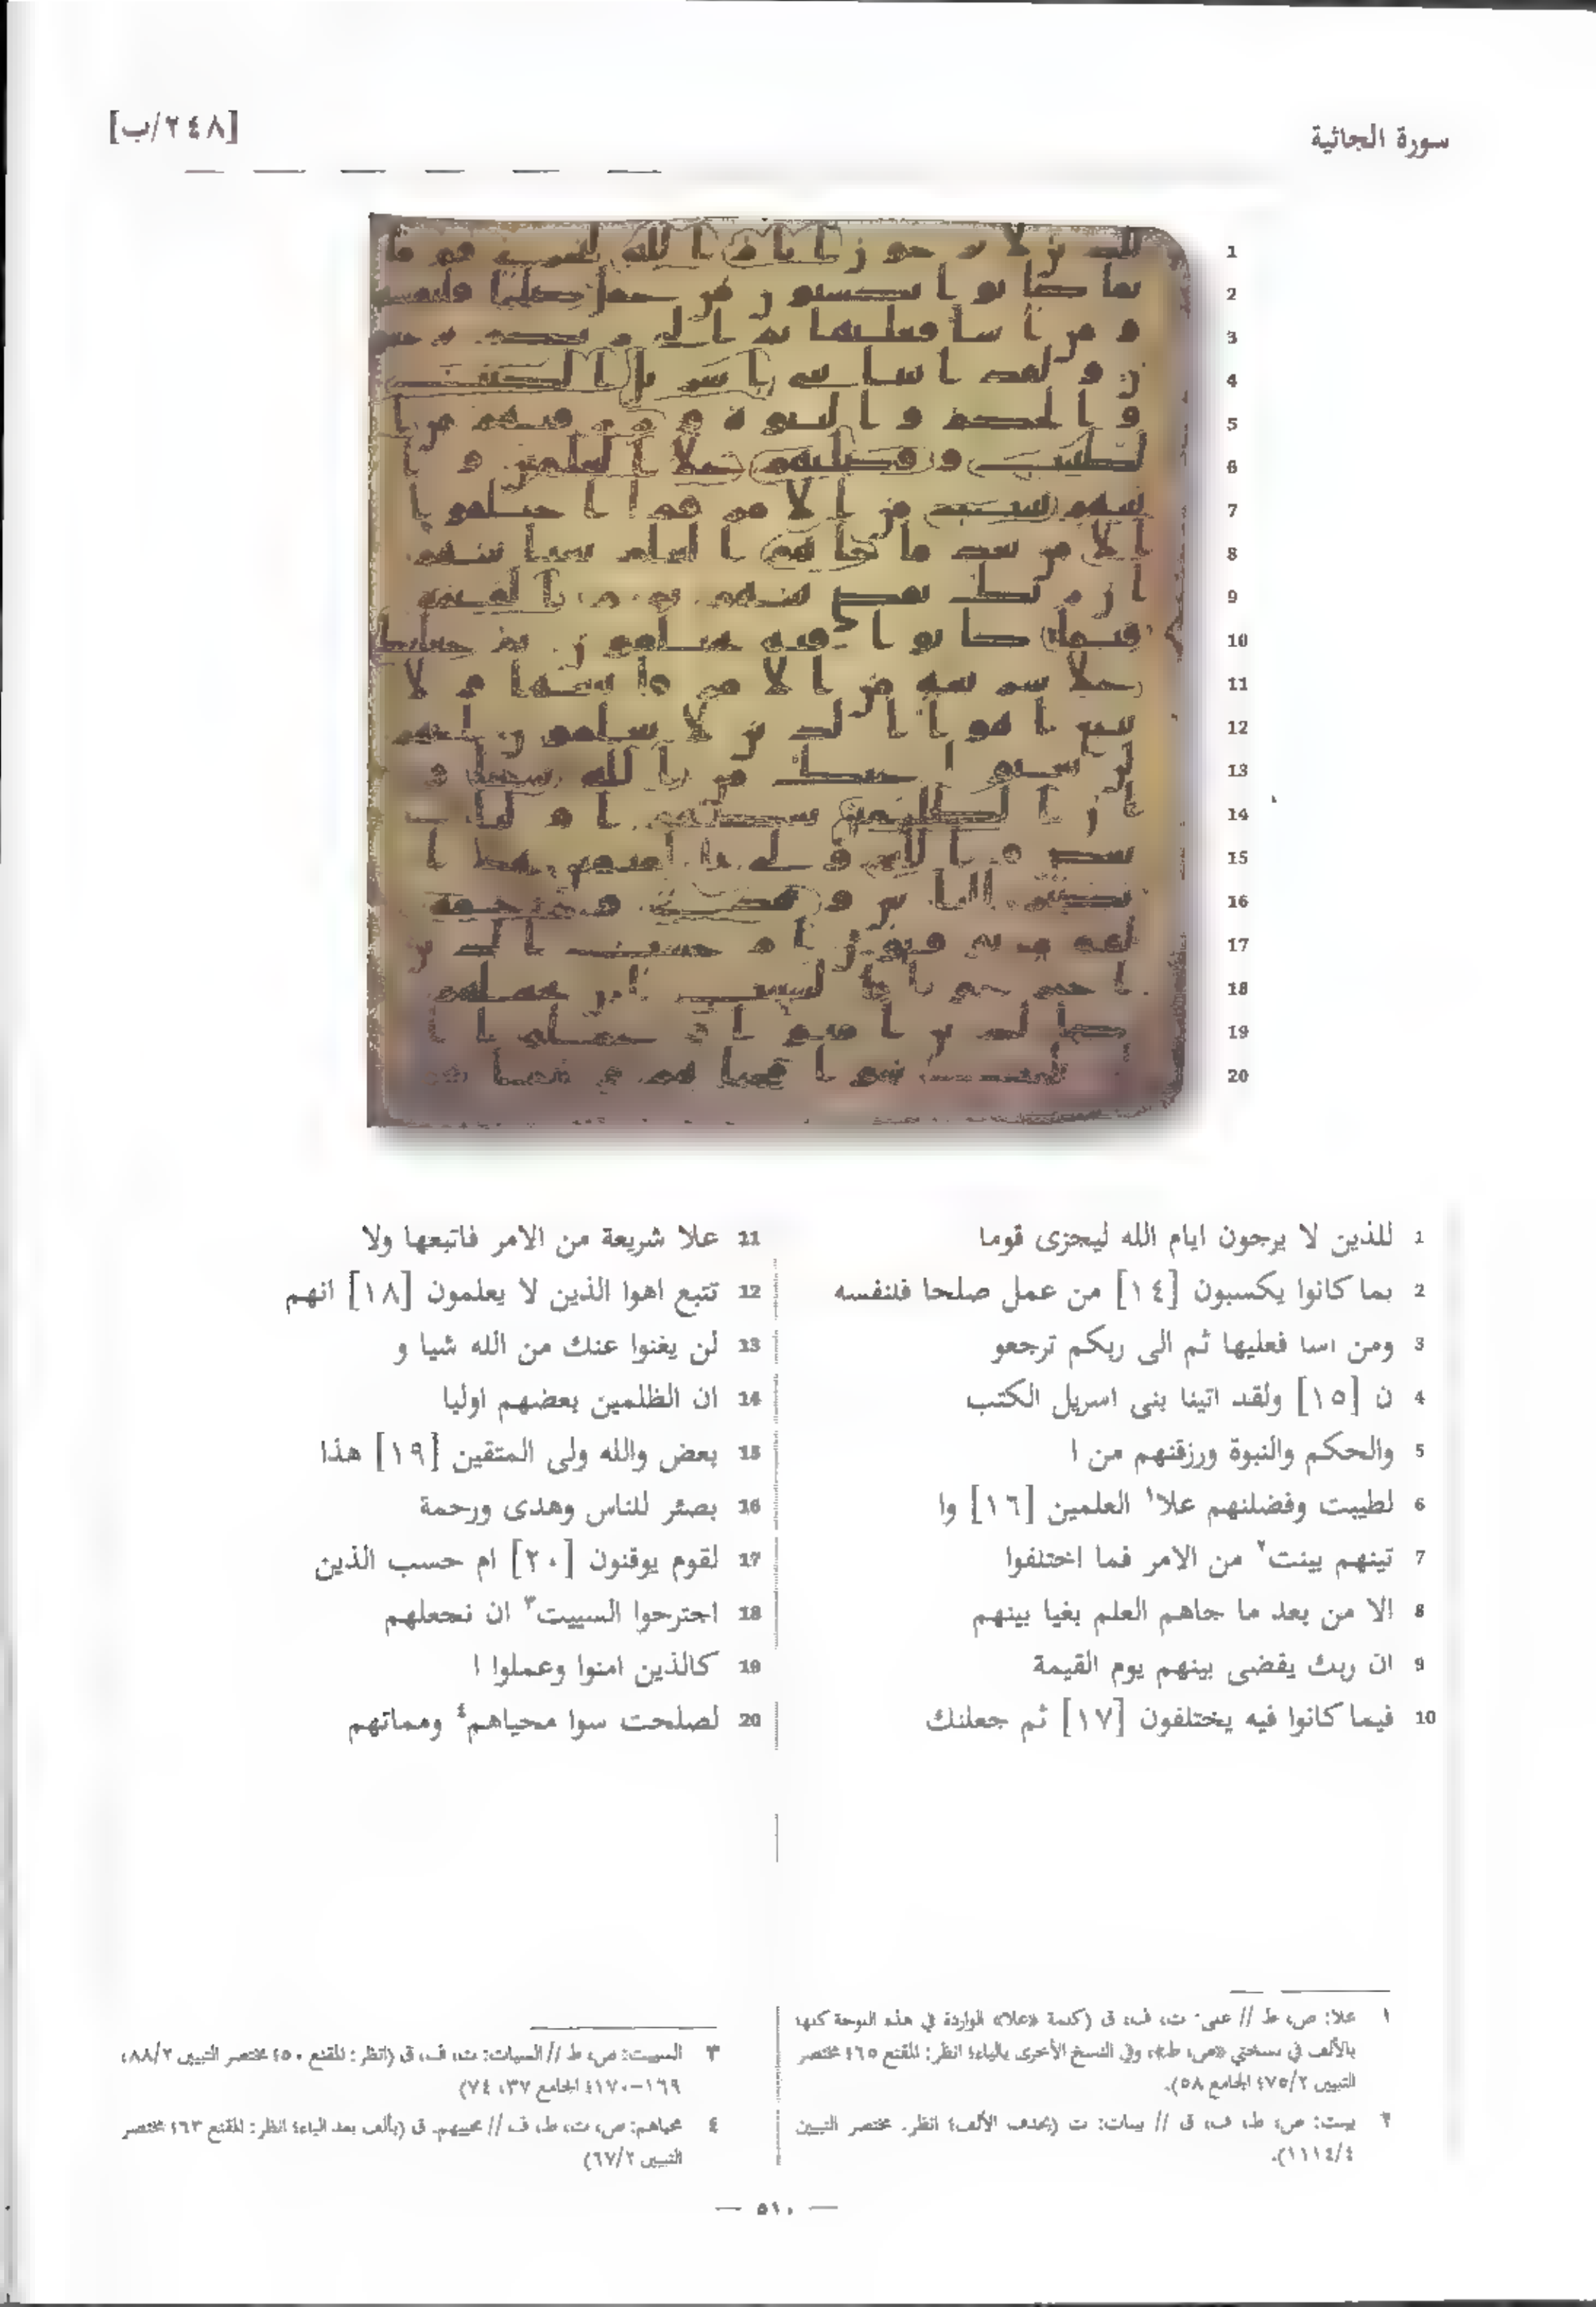 سورة الجاثية
[٢٤٨/ب]
1 للذين لا يرجون ايام الله ليجزى قوما
2 بما كانوا يكسبون [١٤] من عمل صلحا فلنفسه
3 ومن اسا فعليها ثم الى ربكم ترجعو
4 ن [١٥] ولقد اتينا بنى اسريل الكتب
5 والحكم والنبوة ورزقنهم من ا
6 لطيبت وفضلنهم علا١ العلمين [١٦] وا
7 تينهم بينت٢ من الامر فما اختلفوا
8 الا من بعد ما جاهم العلم بغيا بينهم
9 ان ربك يقضى بينهم يوم القيمة
10 فيما كانوا فيه يختلفون [١٧] ثم جعلنك
11 علا شريعة من الامر فاتبعها ولا
12 تتبع اهوا الذين لا يعلمون [١٨] انهم
13 لن يغنوا عنك من الله شيا و
14 ان الظلمين بعضهم اوليا
15 بعض والله ولى المتقين [١٩] هذا
16 بصئر للناس وهدى ورحمة
17 لقوم يوقنون [٢٠] ام حسب الذين
18 اجترحوا السييت٣ ان نجعلهم
19 كالذين امنوا وعملوا ا
20 لصلحت سوا محياهم٤ ومماتهم
١ علا: ص، ط // على: ت، ف، ق (كلمة «علا» الواردة في هذه اللوحة كلها
بالألف في نسختي «ص، ط»، وفي النسخ الأخرى بالياء؛ انظر: المقنع ٦٥؛ مختصر
التبيين ٧٥/٢؛ الجامع ٥٨).
٢ بينت: ص، ط، ف، ق // بينات: ت (بحذف الألف؛ انظر. مختصر التبيين
١١١٤/٤).
٣ السييت: ص، ط // السيات: ت، ف، ق (انظر: المقنع ٥٠؛ مختصر التبيين ٨٨/٢،
١٦٩-١٧٠؛ الجامع ٣٧، ٧٤)
٤ محياهم: ص، ت، ط، ف // محييهم. ق (بألف بعد الياء؛ انظر: المقنع ٦٣؛ مختصر
التبيين ٦٧/٢)
— ٥١٠ —